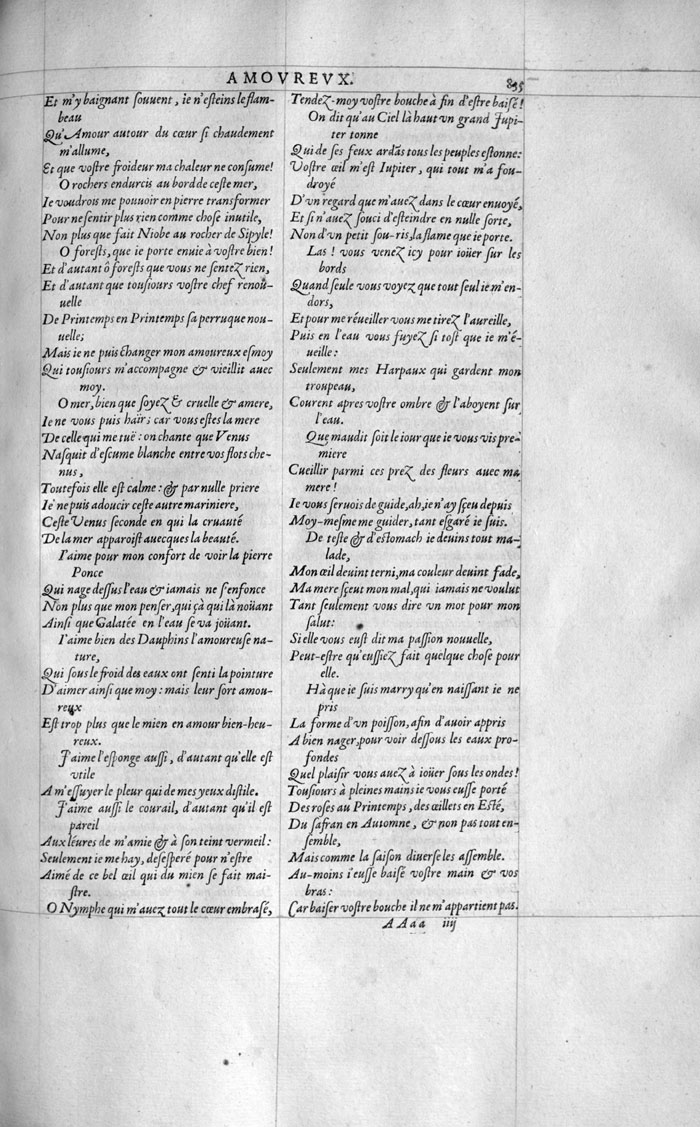 AMOVREVX. 835
Et m'y baignant ſouuent, ie n'eſteins le flam-
beau
Qu'Amour autour du cœur ſi chaudement
m'allume,
Et que voſtre froideur ma chaleur ne conſume!
O rochers endurcis au bord de ceſte mer,
Ie voudrois me pouuoir en pierre transformer
Pour ne ſentir plus rien comme choſe inutile,
Non plus que fait Niobe au rocher de Sipyle!
O foreſts, que ie porte enuie à voſtre bien!
Et d'autant ô foreſts que vous ne ſentez rien,
Et d'autant que touſiours voſtre chef renou-
uelle
De Printemps en Printemps ſa perruque nou-
uelle;
Mais ie ne puis changer mon amoureux eſmoy
Qui touſiours m'accompagne & vieillit auec
moy.
O mer, bien que ſoyez & cruelle & amere,
Ie ne vous puis haïr; car vous eſtes la mere
De celle qui me tuë: on chante que Venus
Naſquit d'eſcume blanche entre vos flots che-
nus,
Toutefois elle eſt calme: & par nulle priere
Ie ne puis adoucir ceſte autre mariniere,
Ceſte Venus ſeconde en qui la cruauté
De la mer apparoiſt auecques la beauté.
I'aime pour mon confort de voir la pierre
Ponce
Qui nage deſſus l'eau & iamais ne s'enfonce
Non plus que mon penſer, qui çà qui là noüant
Ainſi que Galatée en l'eau ſe va joüant.
I'aime bien des Dauphins l'amoureuſe na-
ture,
Qui ſous le froid des eaux ont ſenti la pointure
D'aimer ainſi que moy: mais leur ſort amou-
reux
Eſt trop plus que le mien en amour bien-heu-
reux.
J'aime l'eſponge auſſi, d'autant qu'elle eſt
vtile
A m'eſſuyer le pleur qui de mes yeux diſtile.
J'aime auſſi le courail, d'autant qu'il eſt
pareil
Aux léures de m'amie & à ſon teint vermeil:
Seulement ie me hay, deſeſperé pour n'eſtre
Aimé de ce bel œil qui du mien ſe fait mai-
ſtre.
O Nymphe qui m'auez tout le cœur embraſé,
Tendez-moy voſtre bouche à fin d'eſtre baiſé!
On dit qu'au Ciel là haut vn grand Jupi-
ter tonne
Qui de ſes feux ardãs tous les peuples eſtonne:
Voſtre œil m'eſt Iupiter, qui tout m'a fou-
droyé
D'vn regard que m'auez dans le cœur enuoyé,
Et ſi n'auez ſouci d'eſteindre en nulle ſorte,
Non d'vn petit ſou-ris, la flame que ie porte.
Las! vous venez icy pour ioüer ſur les
bords
Quand ſeule vous voyez que tout ſeul ie m'en-
dors,
Et pour me réueiller vous me tirez l'aureille,
Puis en l'eau vous fuyez ſi toſt que ie m'é-
ueille:
Seulement mes Harpaux qui gardent mon
troupeau,
Courent apres voſtre ombre & l'aboyent ſur
l'eau.
Que maudit ſoit le iour que ie vous vis pre-
miere
Cueillir parmi ces prez des fleurs auec ma
mere!
Ie vous ſeruois de guide, ah, ie n'ay ſçeu depuis
Moy-meſme me guider, tant eſgaré ie ſuis.
De teſte & d'eſtomach ie deuins tout ma-
lade,
Mon œil deuint terni, ma couleur deuint fade,
Ma mere ſçeut mon mal, qui iamais ne voulut
Tant ſeulement vous dire vn mot pour mon
ſalut:
Si elle vous euſt dit ma paſſion nouuelle,
Peut-eſtre qu'euſſiez fait quelque choſe pour
elle.
Hà que ie ſuis marry qu'en naiſſant ie ne
pris
La forme d'vn poiſſon, afin d'auoir appris
A bien nager, pour voir deſſous les eaux pro-
fondes
Quel plaiſir vous auez à ioüer ſous les ondes!
Touſiours à pleines mains ie vous euſſe porté
Des roſes au Printemps, des œillets en Eſté,
Du ſafran en Automne, & non pas tout en-
ſemble,
Mais comme la ſaiſon diuerſe les aſſemble.
Au-moins i'euſſe baiſé voſtre main & vos
bras:
Car baiſer voſtre bouche il ne m'appartient pas.
AAaa iiij